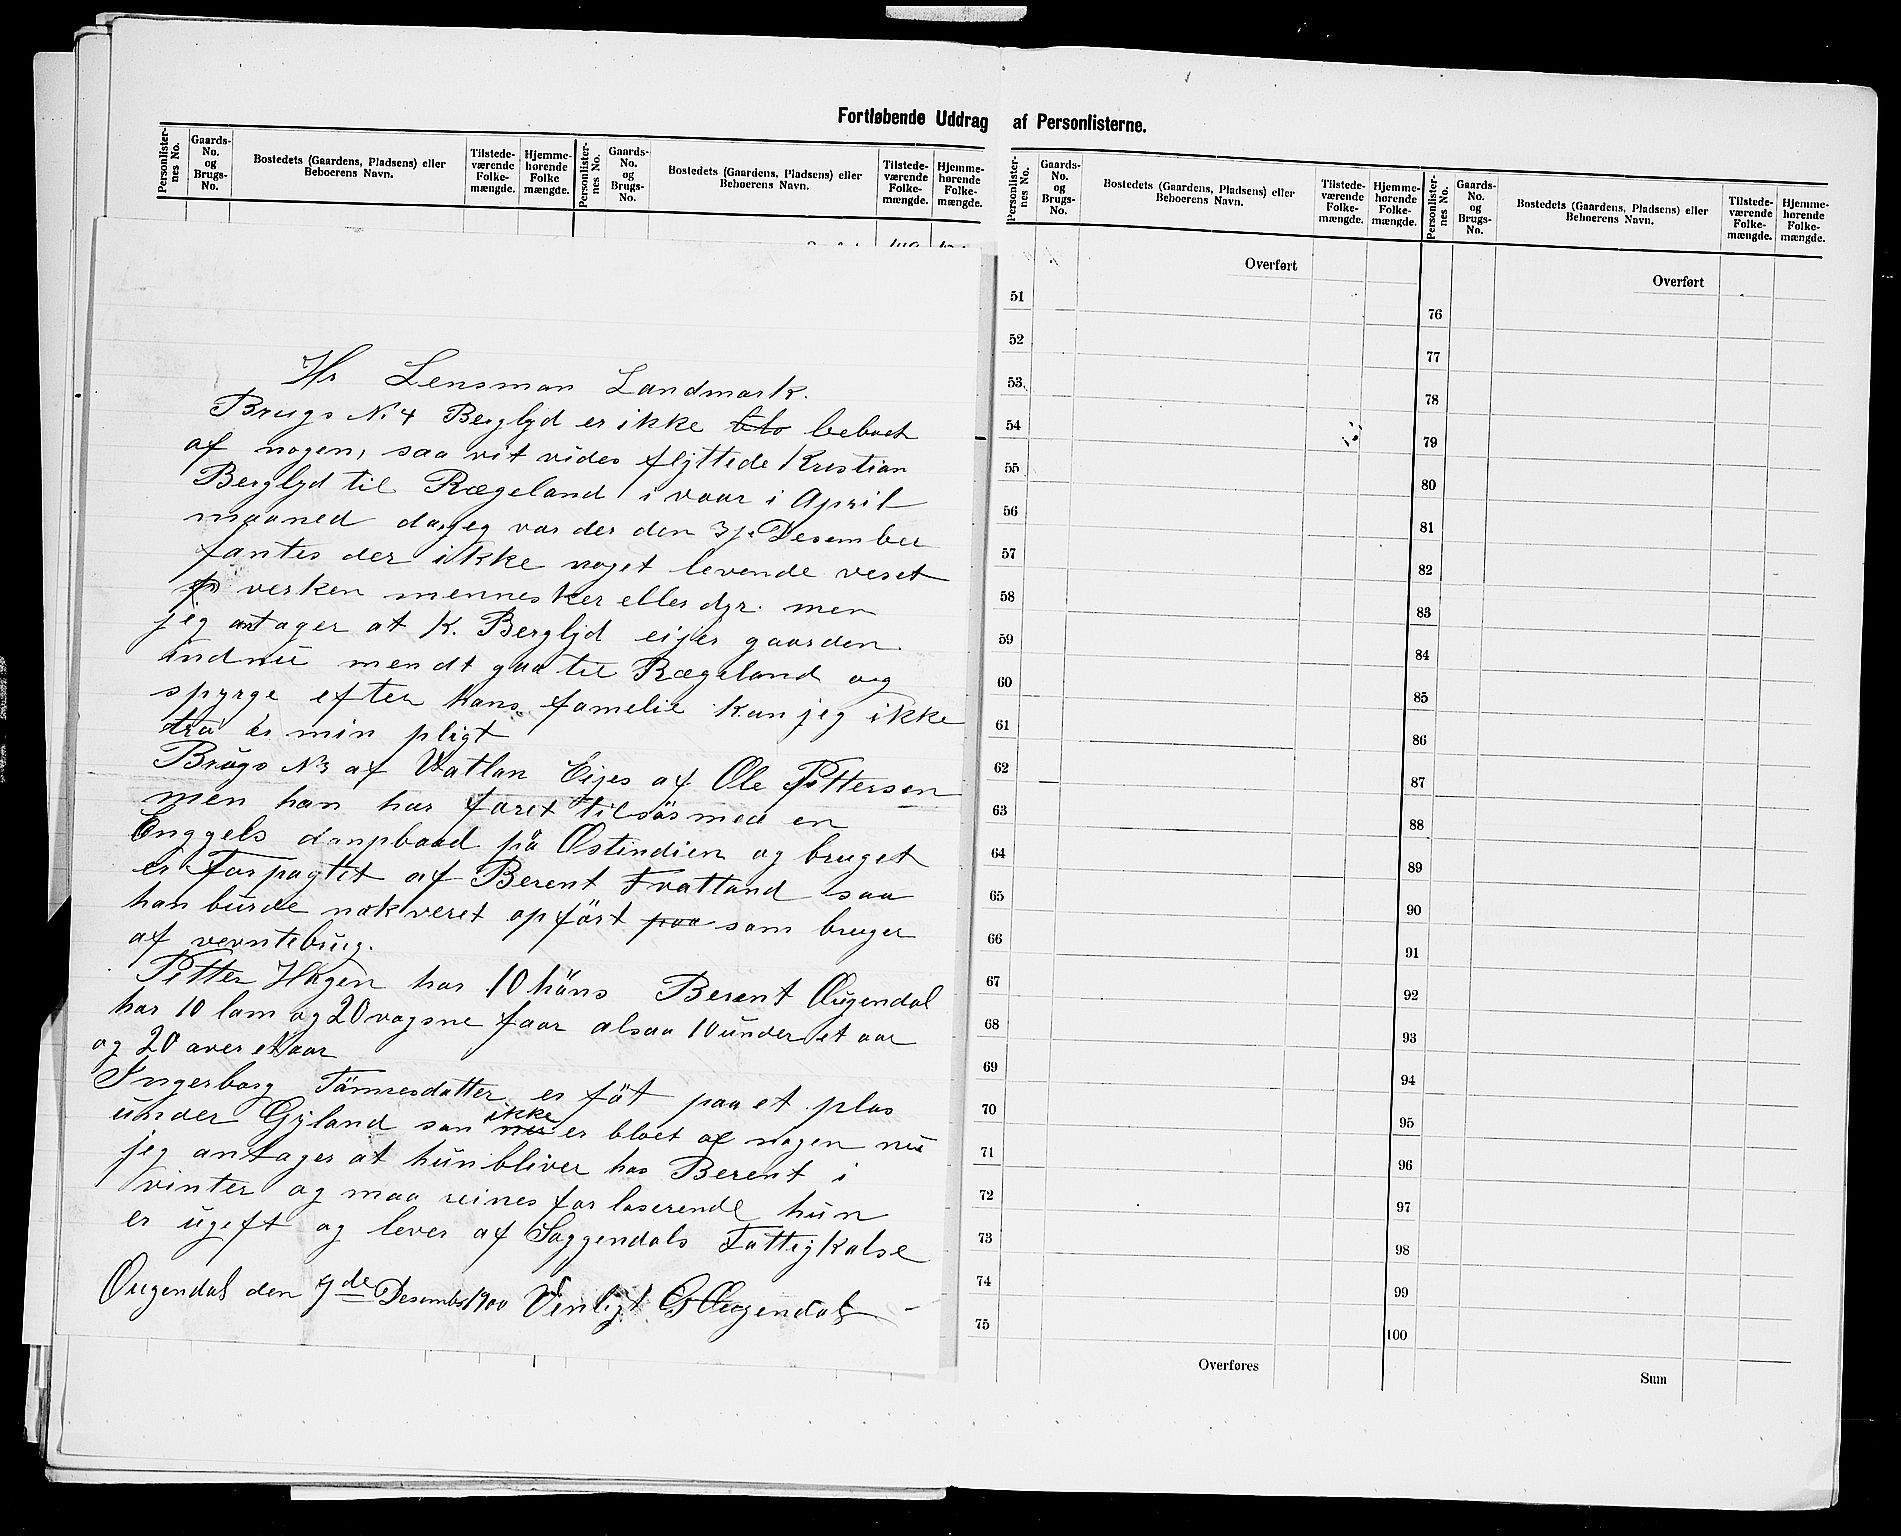 Fortløbende Uddrag af Personlisterne.
Personlister-nes No. Gaards-No. og Brugs-No. Bostedets (Gaardens, Pladsens) eller Beboerens Navn. Tilstede-værende Folke-mængde. Hjemme-hørende Folke mængde. Personlister-nes No. Gaards-No. og Brugs-No. Bostedets (Gaardens, Pladsens) eller Beboerens Navn. Tilstede-værende Folke-mængde. Hjemme-hørende Folke-mængde.
Hr Lensman Landmark.
Brugs N. 4 Berglyd er ikke beboet
af nogen, saa vit vides flyttede Kristian
Berglyd til Rægeland i vaar i April
maaned da jeg var der den 3/. Desember
fantes der ikke noget levende veset
verken mennesker eller dyr. men
jeg antager at K. Berglyd eijer gaarden
indnu men dt gaa til Rægeland og
spyrge efter hans familie kan jeg ikke
tro er min pligt
Brugs N3 af Vatlan Eijes af Ole Pettersen
men han har faret tilsös med en
Enggels danpbaad på Østindien og bruget
er Forpagtet af Berent Fvatland saa
han burde nok veret opfört paa som bruger
af vevntebrug.
Petter Hagen har 10 höns Berent Øugendal
har 10 lam og 20 vogsne faar alsaa 10 under et aar
og 20 aver et aar
Ingerborg Tönnesdatter er föt paa et plas
under Gyland son ikke er bloet af nogen nu
jeg antager at hun bliver hos Berent i
vinter og maa reines for loserende hun
er ugift og lever af Soggendals Fattigkalse
Øugendal den 7de Desembr 1900 Venligt G Øugendal
Personlister-nes No. Gaards-No. og Brugs-No. Bostedets (Gaardens, Pladsens) eller Beboerens Navn. Tilstede-værende Folke-mængde. Hjemme-hørende Folke-mængde. Personlister-nes No. Gaards-No. og Brugs-No. Bostedets (Gaardens, Pladsens) eller Beboerens Navn. Tilstede-værende Folke-mængde. Hjemme-hørende Folke-mængde.
Overført
51
52
53
54
55
56
57
58
59
60
61
62
63
64
65
66
67
68
69
70
71
72
73
74
75
Overføres
Overført
76
77
78
79
80
81
82
83
84
85
86
87
88
89
90
91
92
93
94
95
96
97
98
99
100
Sum